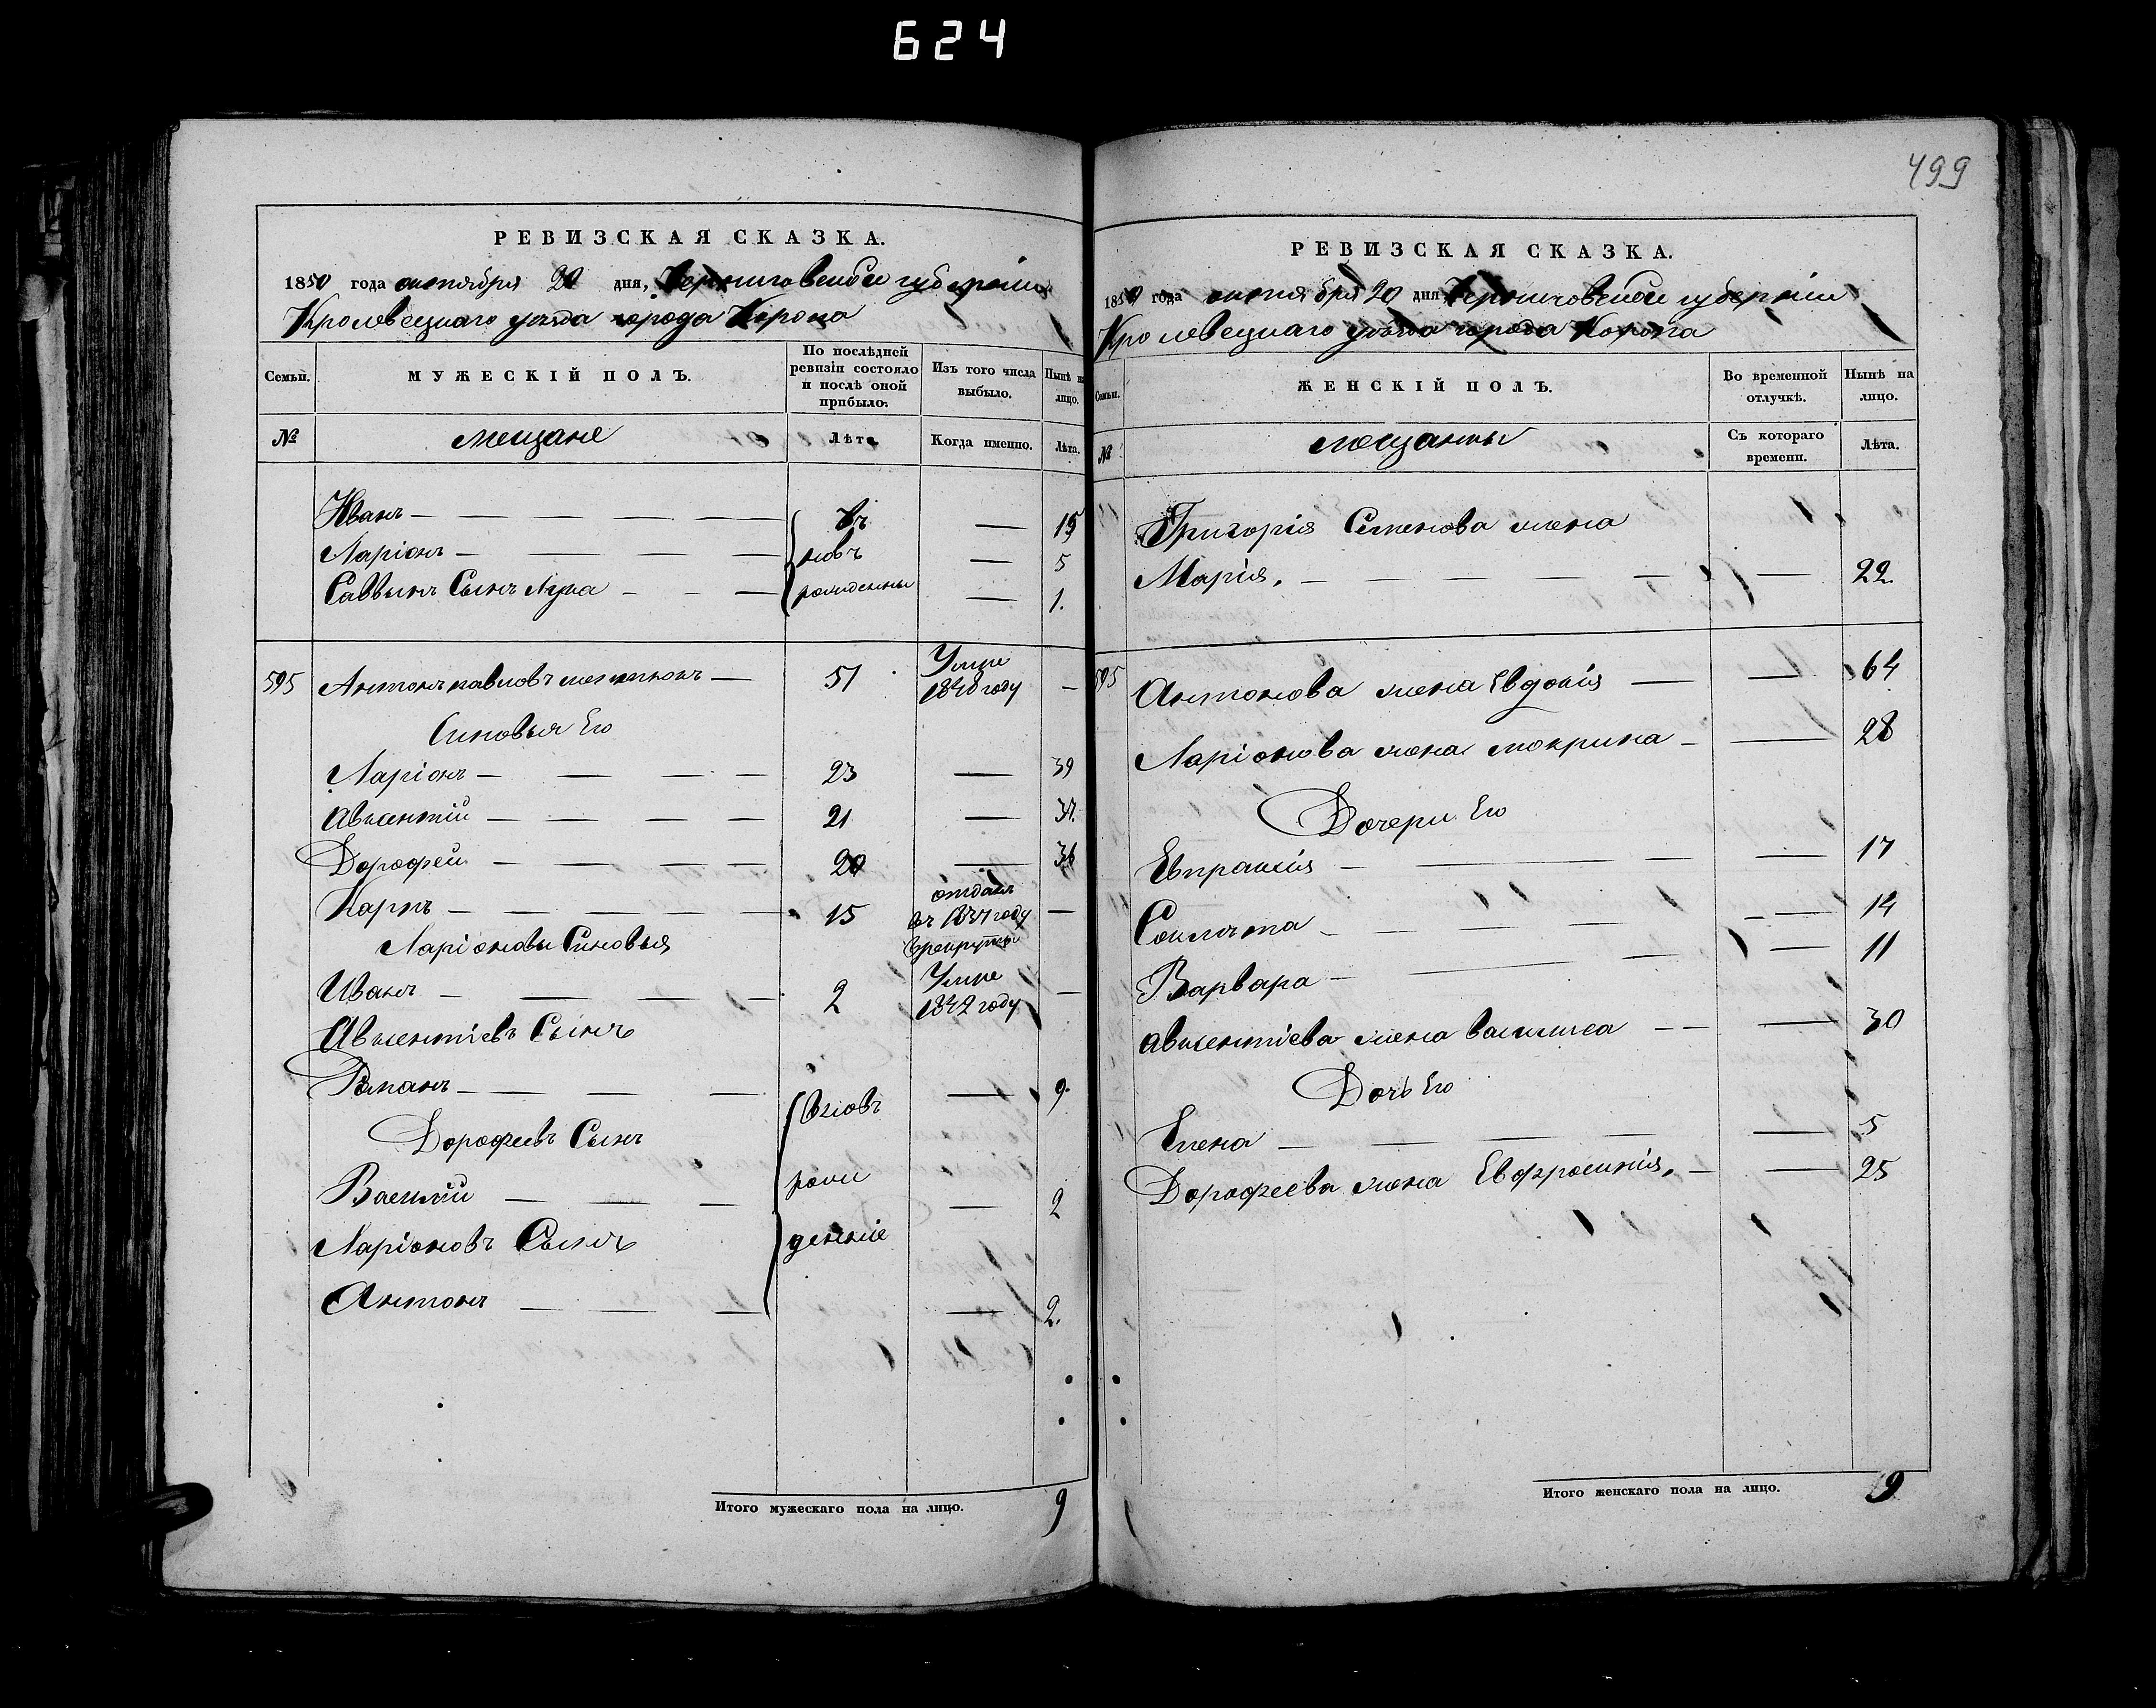 624
499
РЕВИЗСКАЯ СКАЗКА.
1850 года октября 20 дня, Черниговской губерніи
Кролевецкаго уѣзда города Коропа
Семьи. МУЖЕСКІЙ ПОЛЪ. По послѣдней ревизіи состояло и послѣ оной прибыло. Изъ того числа выбыло. Нынѣ на лицо.
№ мещане Лѣта Когда именно. Лѣта.
Иванъ — въ — 15
Ларіонъ — новъ — 5
Саввынъ Сынъ Лука — рожденны — 1.
595 Антонъ павловъ — 51 Умре 1848 году —
Синовья Его
Ларіонъ — 23 — 39
Авксентій — 21 — 37.
Дорофей — 20 — 36
Карпъ — 15 отданъ въ 1837 году врекруты —
Ларіоновы Синовья
Иванъ — 2 Умре 1842 году —
Авксентіевъ Сынъ
Романъ — вновь — 9.
Дорофеевъ Сынъ
Василій — рож — 2
Ларіоновъ Сынъ денніе
Антонъ — — 2.
Итого мужескаго пола на лицо. 9
РЕВИЗСКАЯ СКАЗКА.
1850 года октября 20 дня Черниговской губерніи
Кролевецкаго уѣзда города Коропа
Семьи. ЖЕНСКІЙ ПОЛЪ. Во временной отлучкѣ. Нынѣ на лицо.
№ мещанки Съ котораго времени. Лѣта.
Григорія Семенова жена
Марія. — — 22.
595 Антонова жена Евдокія — — 64
Ларіонова жена мокрина — — 28
Дочери Его
Евпраксія — — 17
Соклѣта — — 14
Варвара — — 11
Авксентіева жена василиса — — 30
Дочь Его
Елена — — 5
Дорофеева жена Евфросинія. — — 25
Итого женскаго пола на лицо. 9